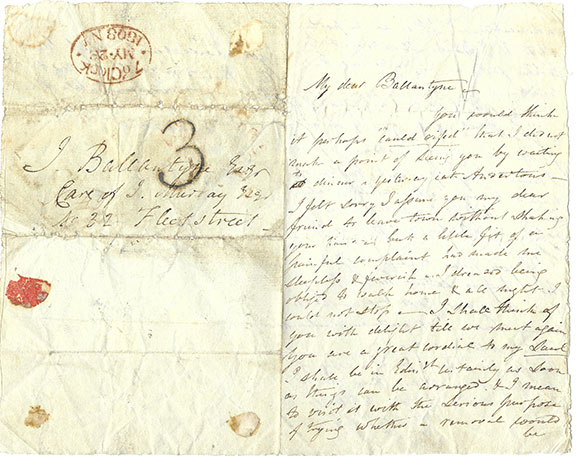 7 o'Clock
MY. 26
1808 NT
3
J. Ballantyne Esqr
Care of J. Murray Esqr
No 32 Fleet street
My dear Ballantyne
you would think
it perhaps "cauld rifed" that I did not
make a point of seeing you by waiting
dinner yesterday at Andertons
I felt sorry I assure you my dear
friend to leave town without shaking
your hand but a little fit of a
painful complaint had made me
sleepless & feverish I dreaded being
obliged to walk home & all night I
could not stop I shall think of
you with delight till we meet again
You are a great cordial to my Soul
I shall be in Edinr certainly as soon
as things can be arranged & I mean
to visit it with the serious purpose
of trying whether a removal would
be